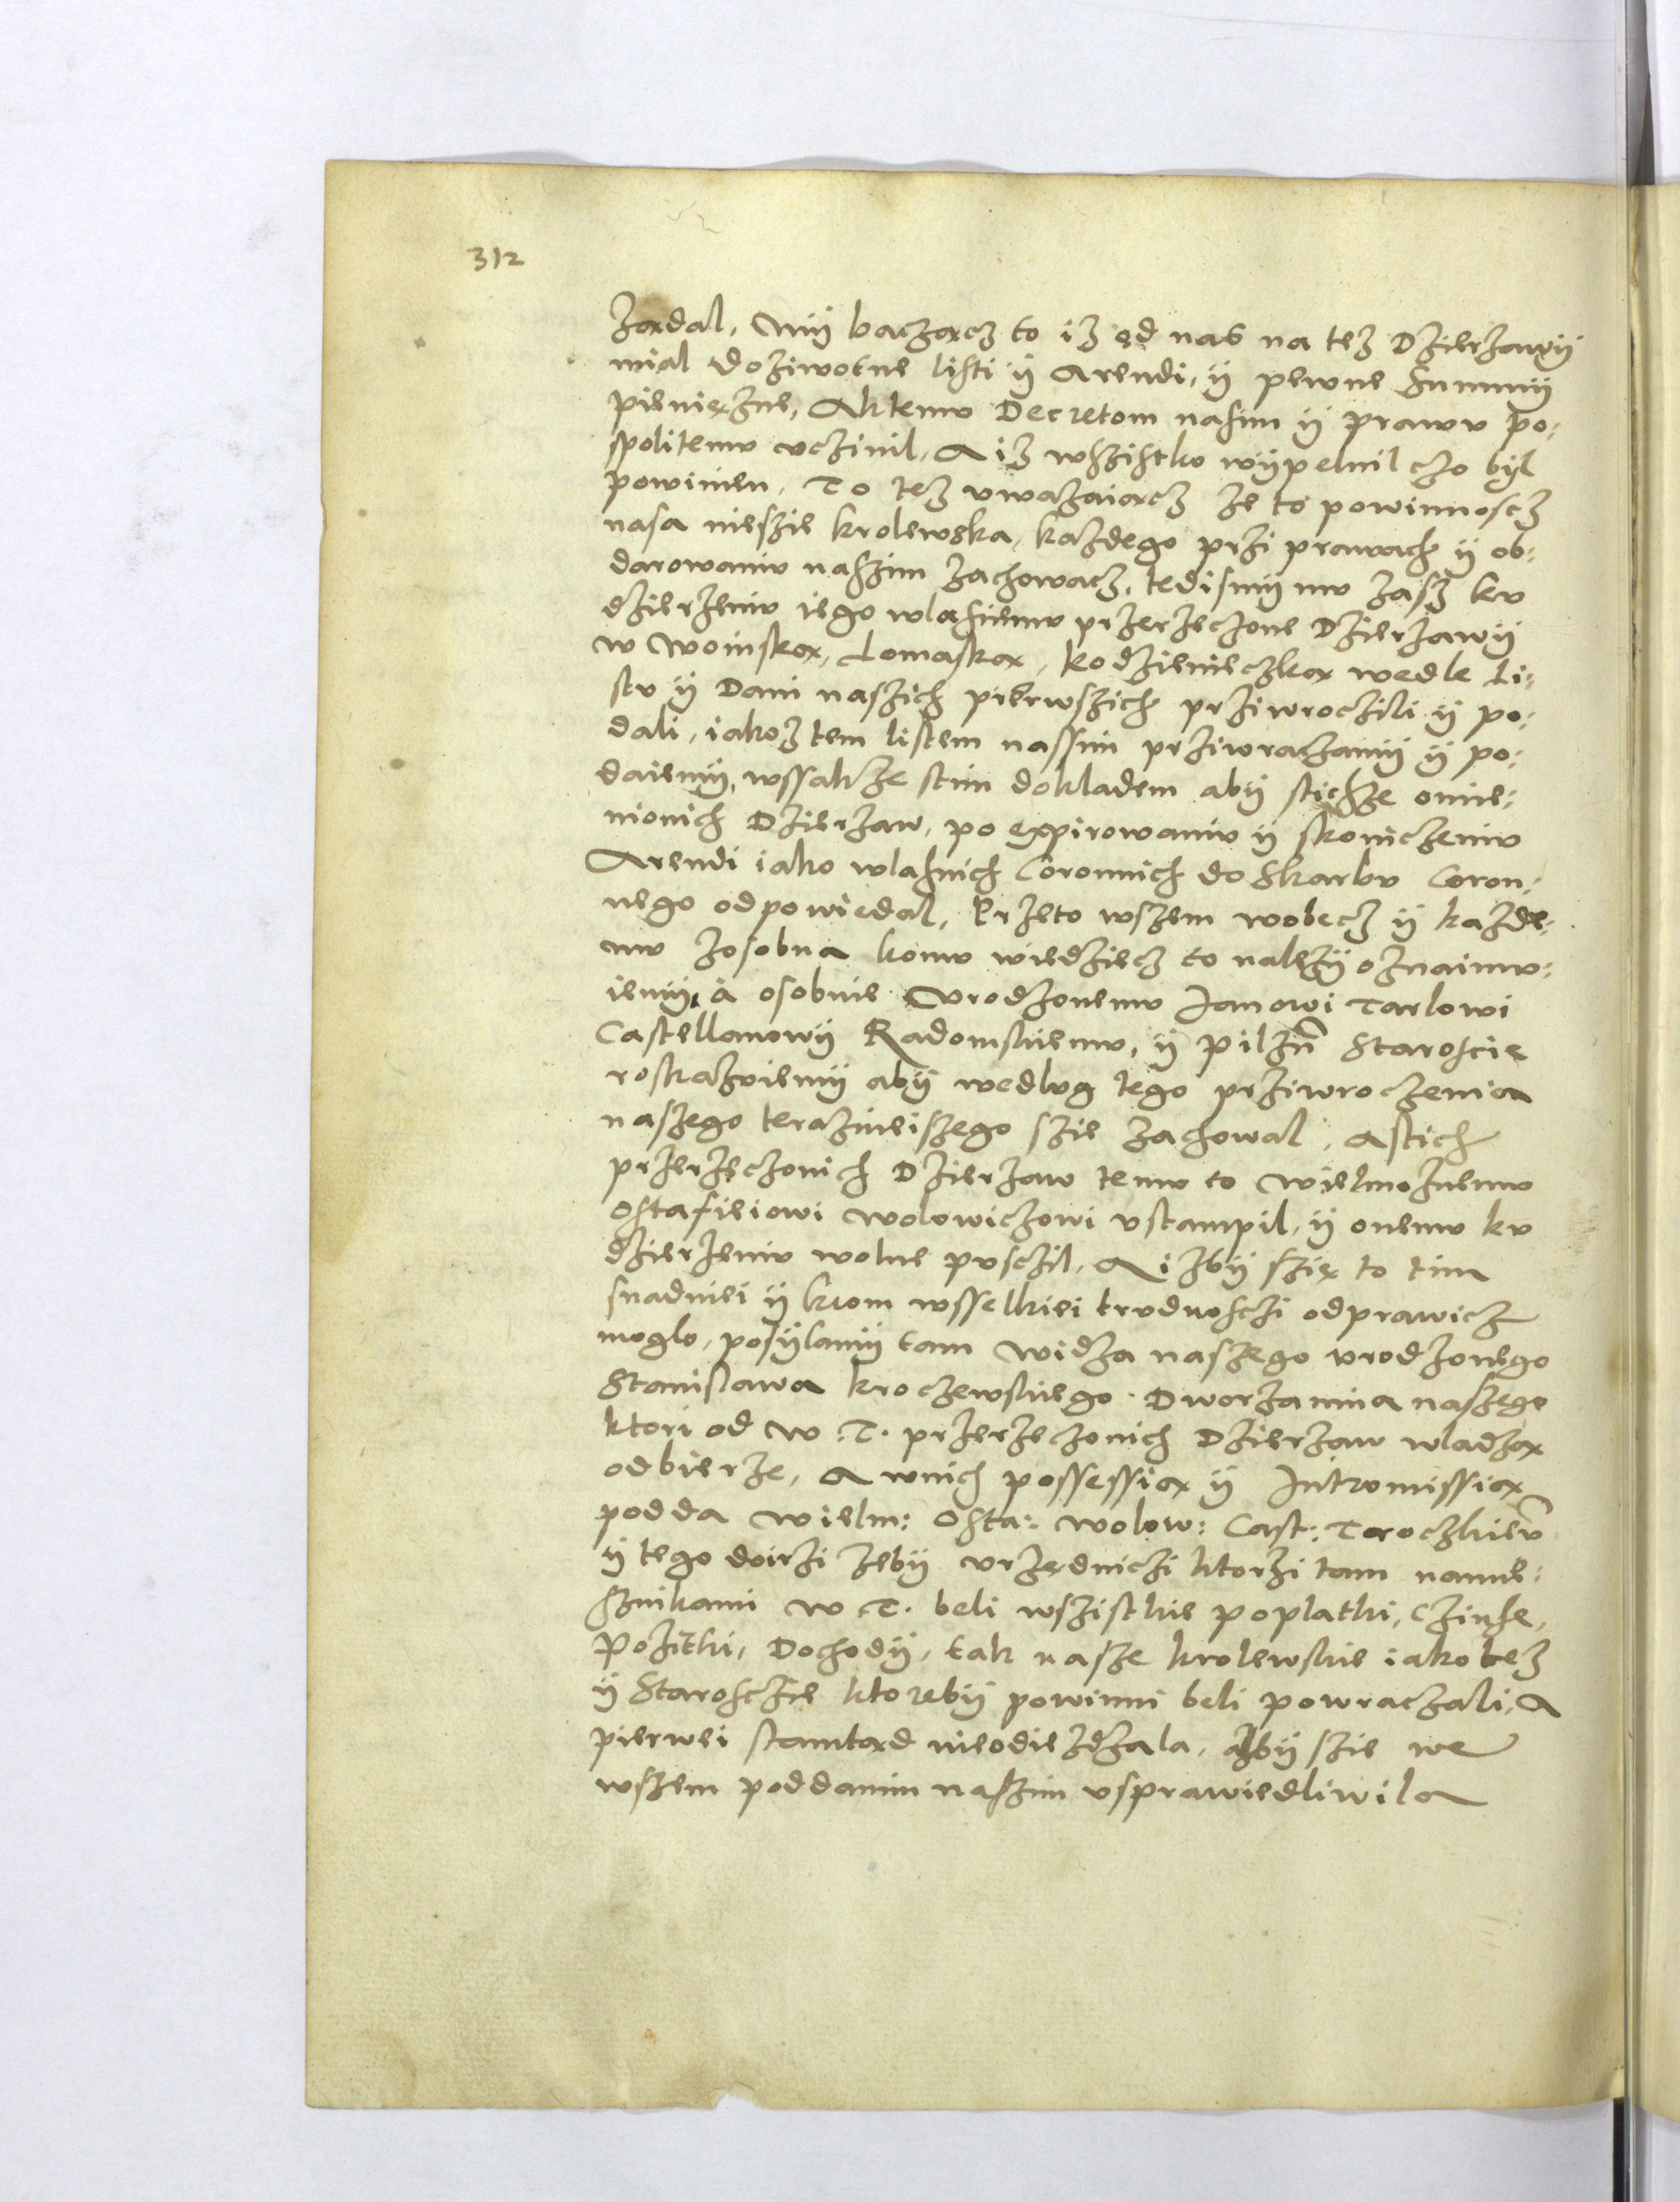 312
żądal, My bacząncz to iz od nas na tez Dzierzawÿ
mial Doziwotne listi ÿ Arendi, ÿ pewne Summÿ
pieniężne, Aktemu Decretom nasim ÿ prawu po:
spolitemu uczinil, A iz wszistko wÿpelnil czo bÿl
powinien, To tez uwazaiącz ze to powinnoscz
nasa niesie krolewska, kazdego przi prawach ÿ ob:
darowaniu naszim zachowacz, tedismÿ mu zasz ku
dzierzeniu iego wlasnemu przerzeczone Dzierzawÿ
w Woinską, Lomaską, Kodzienieczką wedle Li:
stu ÿ Dani naszich pierwszich prziwroczili ÿ po:
dali, iakoz tem listem nassim prziwraczamÿ ÿ po:
daiemÿ, wssakze stim dokladem abÿ stichze omie:
nionich Dzierzaw, po expirowaniu ÿ skonczeniu
Arendi iako wlasnich Coronnich do Skarbu Coron:
nego odpowiedal, Przeto wszem wobecz ÿ kazde:
mu zosobna komu wiedziecz to nalezÿ oznaimu:
iemÿ, a osobnie Urodzonemu Janowi Tarlowi
Castellanowÿ Radomskiemu, ÿ Pilzn̄ Staroscie
roskazuiemÿ abÿ wedlug tego prziwroczenia
naszego terazneiszego szie zachowal, A stich
przerzeczonich Dzierzaw temu to Wielmoznemu
Ostafieiowi Wolowiczowi ustampil, ÿ onemu ku
dzierzeniu wolne pusczil, A izbÿ szię to tim
snadniei ÿ krom wsselkiei trudnosczi odprawicz
moglo, posÿlamÿ tam Widza naszego urodzonego
Stanislawa kroczewskiego Dworzanina naszego
ktori od W. T. przerzeczonich Dzierzaw wladzą
odbierze, A wnich possessią ÿ Intromissią
podda Wielm: Osta: Wolow: Cast: Troczkieū
ÿ tego doirzi zebÿ urzędniczi ktorzi tam namie:
sznikami W. T. beli wszistkie poplatki, Czinse,
Pozitki, Dochodÿ, tak nasze krolewskie iako tez
ÿ Starosczie ktorebÿ powinni beli powraczali, A
pierwei stamtąd nieodiezdzala, Azbÿ szie we
wszem poddanim naszim usprawiedliwila